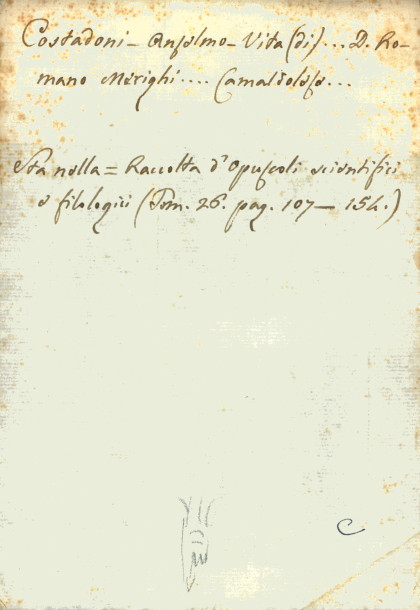 Costadoni - Anselmo - Vita (di)... D. Ro-
mano Merighi.... Camaldolese...
Sta nella = Raccolta d'Opuscoli scientifici
e filologici (Tom. 26. pag. 107 — 154.)
C